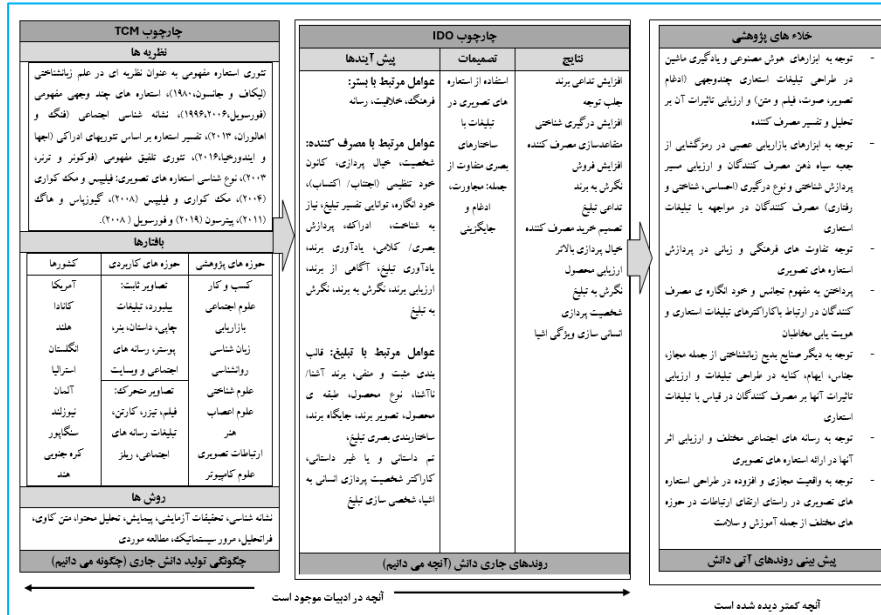 چارچوب TCM
نظریه ها
تئوری استعاره مفهومی به عنوان نظریه ای در علم زبانشناختی
(لیکاف و جانسون،۱۹۸۰)، استعاره های چند وجهی مفهومی
(فورسویل،۱۹۹۶،۲۰۰۶)، نشانه شناسی اجتماعی (فنگ و
اهالوران، ۲۰۱۳)، تفسیر استعاره بر اساس تئوریهای ادراکی (اجها
و ایندورخیا،۲۰۱۶)، تئوری تلفیق مفهومی (فوکونر و ترنر،
۲۰۰۳)، نوع شناسی استعاره های تصویری: فیلیپس و مک کواری
(۲۰۰۴)، مک کواری و فیلیپس (۲۰۰۸)، گیوزپاس و هاگ
(۲۰۱۱)، پیترسون (۲۰۱۹) و فورسویل (۲۰۰۸).
بافتارها
حوزه های پژوهشی
کسب و کار
علوم اجتماعی
بازاریابی
زبان شناسی
روانشناسی
علوم شناختی
علوم اعصاب
هنر
ارتباطات تصویری
علوم کامپیوتر
حوزه های کاربردی
تصاویر ثابت:
بیلبورد، تبلیغات
چاپی، داستان، بنر،
پوستر، رسانه های
اجتماعی و وبسایت
تصاویر متحرک:
فیلم، تیزر، کارتن،
تبلیغات رسانه های
اجتماعی، ریلز
کشورها
آمریکا
کانادا
هلند
انگلستان
استرالیا
آلمان
نیوزلند
سنگاپور
کره جنوبی
هند
روش ها
نشانه شناسی، تحقیقات آزمایشی، پیمایش، تحلیل محتوا، متن کاوی،
فراتحلیل، مرور سیستماتیک، مطالعه موردی
چگونگی تولید دانش جاری (چگونه می دانیم)
چارچوب IDO
پیش آیندها
عوامل مرتبط با بستر:
فرهنگ، خلاقیت، رسانه
عوامل مرتبط با مصرف کننده:
شخصیت، خیال پردازی، کانون
خود تنظیمی (اجتناب/ اکتساب)،
خود انگاره، توانایی تفسیر تبلیغ، نیاز
به شناخت، ادراک، پردازش
بصری/ کلامی، یادآوری برند،
یادآوری تبلیغ، آگاهی از برند،
ارزیابی برند، نگرش به برند، نگرش
به تبلیغ
عوامل مرتبط با تبلیغ: قالب
بندی مثبت و منفی، برند آشنا/
ناآشنا، نوع محصول، طبقه ی
محصول، تصویر برند، جایگاه برند،
ساختاربندی بصری تبلیغ،
تم داستانی و یا غیر داستانی،
کاراکتر شخصیت پردازی انسانی به
اشیا، شخصی سازی تبلیغ
تصمیمات
استفاده از استعاره
های تصویری در
تبلیغات با
ساختارهای
بصری متفاوت از
جمله: مجاورت،
ادغام و
جایگزینی
نتایج
افزایش تداعی برند
جلب توجه
افزایش درگیری شناختی
متقاعدسازی مصرف کننده
افزایش فروش
نگرش به برند
تداعی تبلیغ
تصمیم خرید مصرف کننده
خیال پردازی بالاتر
ارزیابی محصول
نگرش به تبلیغ
شخصیت پردازی
انسانی سازی ویژگی اشیا
روندهای جاری دانش (آنچه می دانیم)
خلاء های پژوهشی
- توجه به ابزارهای هوش مصنوعی و یادگیری ماشین
در طراحی تبلیغات استعاری چندوجهی (ادغام
تصویر، صوت، فیلم و متن) و ارزیابی تاثیرات آن بر
تحلیل و تفسیر مصرف کننده
- توجه به ابزارهای بازاریابی عصبی در رمزگشایی از
جعبه سیاه ذهن مصرف کنندگان و ارزیابی مسیر
پردازش شناختی و نوع درگیری (احساسی، شناختی و
رفتاری) مصرف کنندگان در مواجهه با تبلیغات
استعاری
- توجه تفاوت های فرهنگی و زبانی در پردازش
استعاره های تصویری
- پرداختن به مفهوم تجانس و خود انگاره ی مصرف
کنندگان در ارتباط باکاراکترهای تبلیغات استعاری و
هویت یابی مخاطبان
- توجه به دیگر صنایع بدیع زبانشناختی از جمله مجاز،
جناس، ایهام، کنایه در طراحی تبلیغات و ارزیابی
تاثیرات آنها بر مصرف کنندگان در قیاس با تبلیغات
استعاری
- توجه به رسانه های اجتماعی مختلف و ارزیابی اثر
آنها در ارائه استعاره های تصویری
- توجه به واقعیت مجازی و افزوده در طراحی استعاره
های تصویری در راستای ارتقای ارتباطات در حوزه
های مختلف از جمله آموزش و سلامت
پیش بینی روندهای آتی دانش
آنچه در ادبیات موجود است
آنچه کمتر دیده شده است